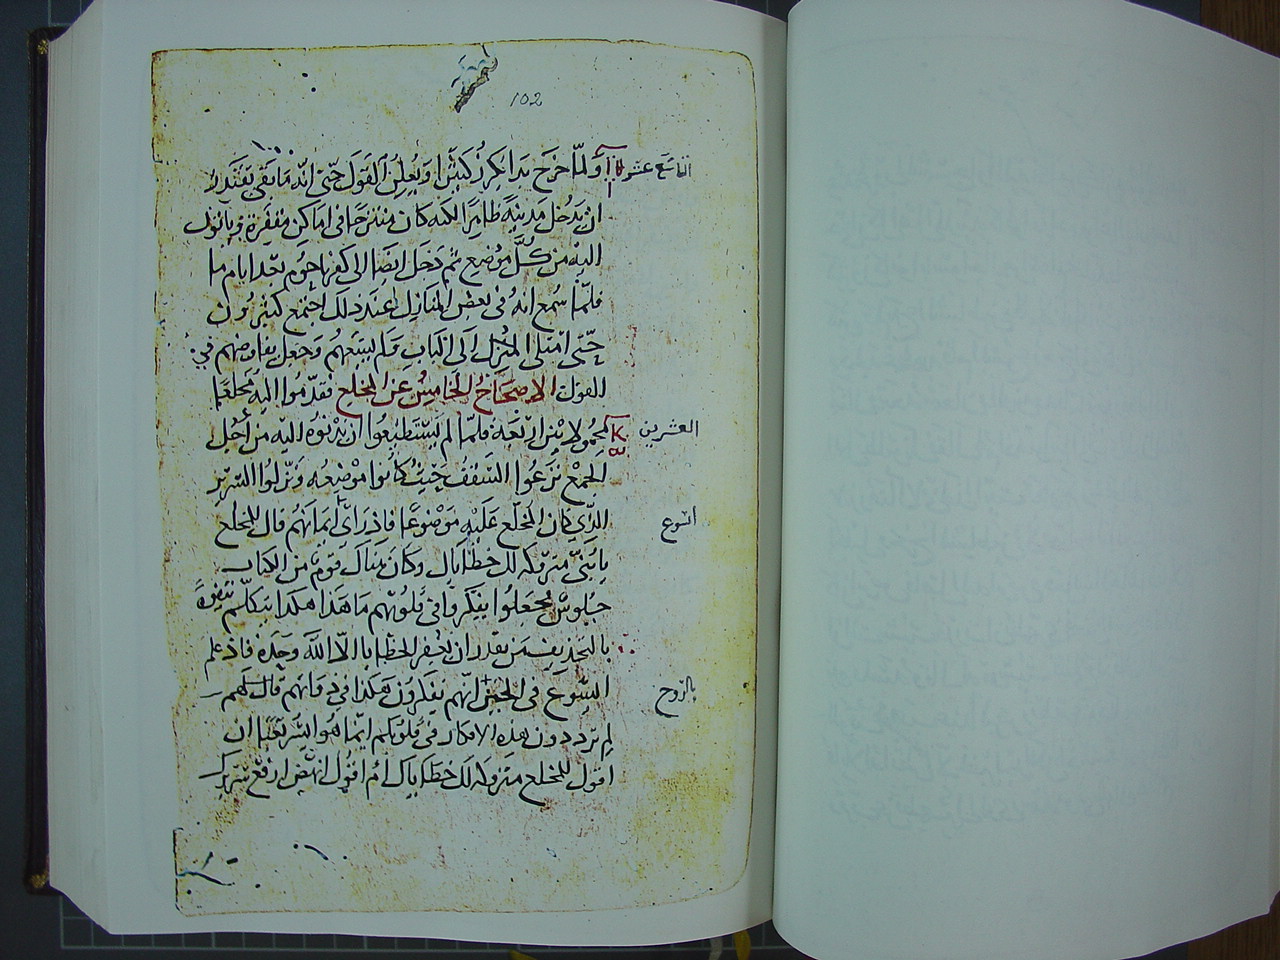 102
التاسع عشر
ولمّا خرج بدا يكرز كثيرًا ويعلن القول حتى انه ما بقى يقتدر
ان يدخل مدينه ظاهرًا لكنه كان منتزحًا في اماكن مقفرة وياتون
اليه من كل موضع ثم دخل ايضا الى كفرناحوم بعد ايام ما
فلمّا سُمع انه في بعض المنازل عند ذلك اجتمع كثيرون
حتى امتلى المنزل الى الباب ولم يسعهم وجعل يفاوضهم في
القول الاصحاح الخامس عن المخلع تقدموا اليه مخلعًا
العشرين
محمولا بين اربعه فلمّا لم يستطيعوا ان يدنوه اليه من اجل
الجمع نزعوا السقف حيث كانوا موضعه ونزلوا السرير
الذي كان المخلع عليه موضوعًا فاذ راى ايمانهم قال للمخلع
يا بُنيّ متروكه لك خطاياك وكان هناك قوم من الكتاب
جلوس فجعلوا يفتكروا في قلوبهم ما هذا هكذا يتكلم
بالتجديف من يقدر ان يغفر الخطايا الا الله وحده فاذ علم
اليسوع في الحين انهم يفكرون هكذا في ذواتهم قال لهم
بالروح
لم ترددون هذه الافكار في قلوبكم ايما هو اشر تعبًا ان
اقول للمخلع متروكه لك خطاياك ام اقول انهض ارفع سريرك